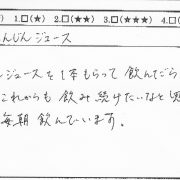 1.□(★★) 2.□(★★★) 3.□(★★ 4.□(★
んじんジュース
ジュースを1本もらって飲んだら
これからも飲み続けたいなと
毎朝飲んでいます。